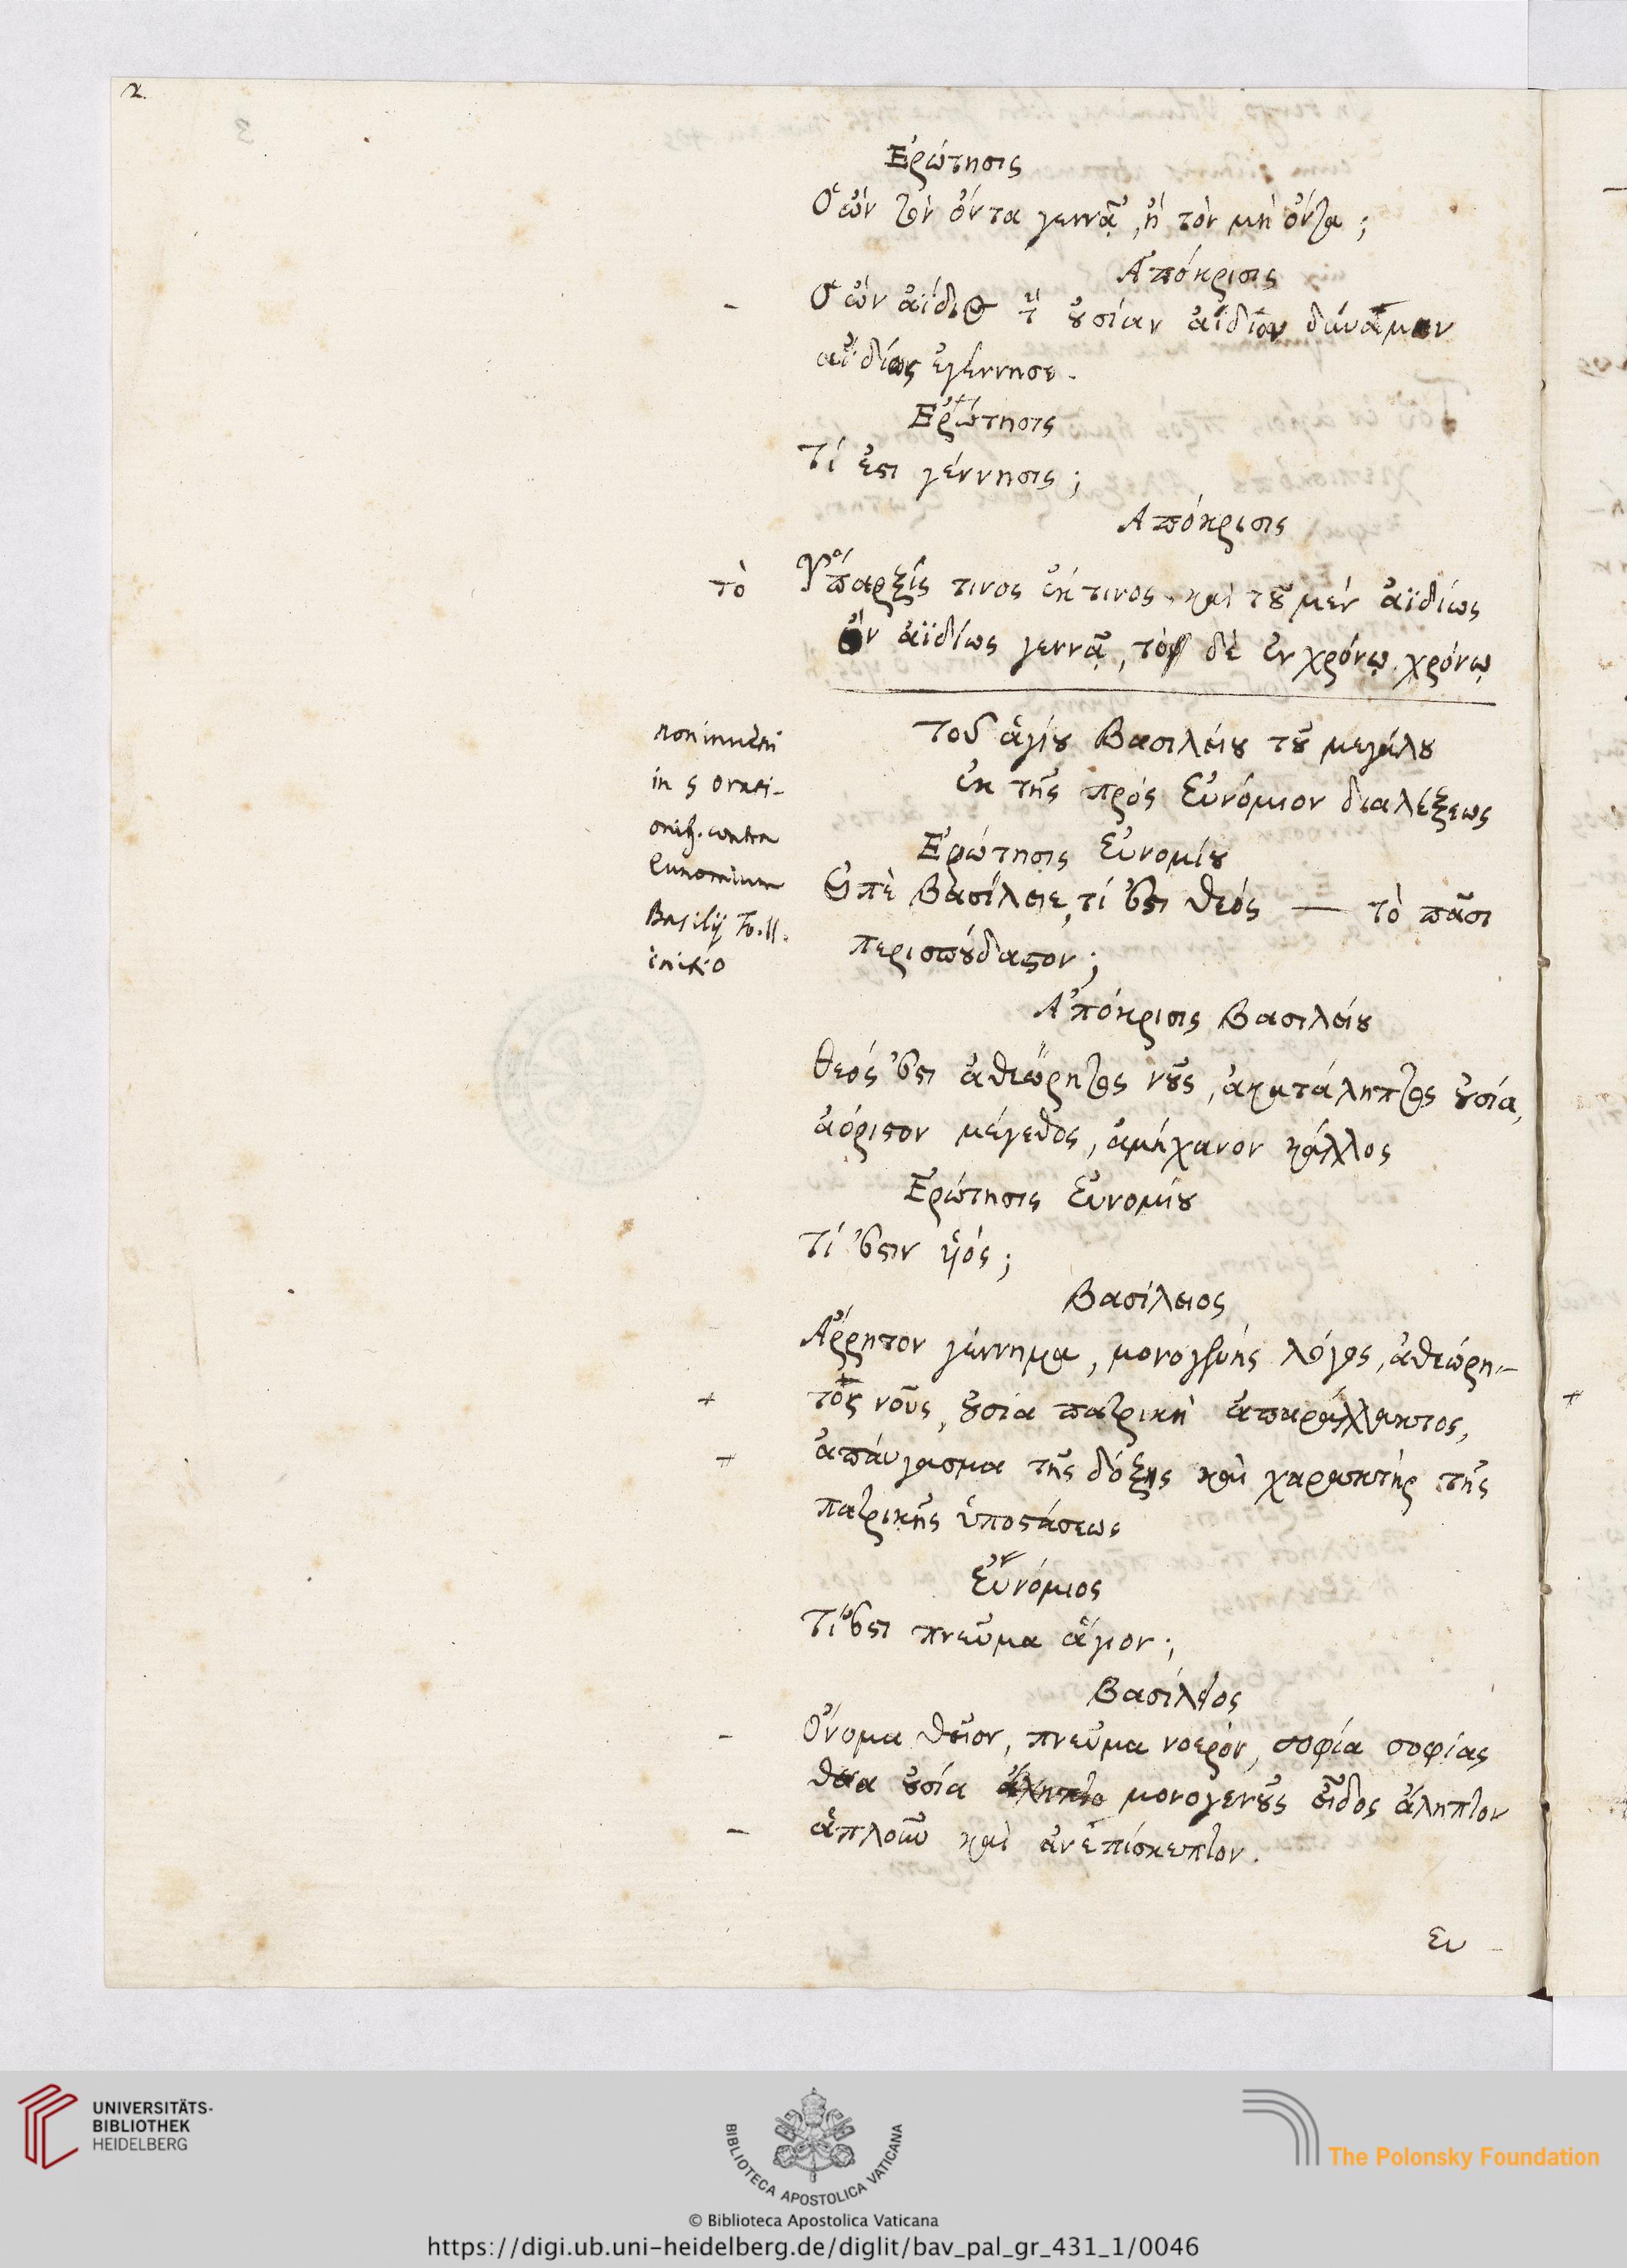 2.
3
Ἐρώτησις
Ὁ ὢν τὸν ὄντα γεννᾷ, ἢ τὸν μὴ ὄντα;
Ἀπόκρισις
- Ὁ ὢν ἀΐδιος οὐσίαν ἀΐδιον
ἀϊδίως ἐγέννησε.
Ἐρώτησις
Τί ἐστι γέννησις;
Ἀπόκρισις
τὸ Ὕπαρξίς τινος ἐκ τινος. καὶ τοῦ μὲν ἀϊδίως
ὂν ἀϊδίως γεννᾷ, τὸ δὲ ἐν χρόνῳ. χρόνῳ
Τοῦ ἁγίου Βασιλείου τοῦ μεγάλου
ἐκ τῆς πρὸς Εὐνόμιον διαλέξεως
non inueni
in 5 orati-
onib. contra
Eunomium
Basilij To. II.
initio
Ἐρώτησις Εὐνομίου
Εἰπὲ Βασίλειε, τί ἐστι θεός — τὸ πᾶσι
περισπούδαστον;
Ἀπόκρισις Βασιλείου
Θεός ἐστι ἀθεώρητος νοῦς, ἀκατάληπτος οὐσία,
ἀόριστον μέγεθος, ἀμήχανον κάλλος
Ἐρώτησις Εὐνομίου
Τί ἐστιν υἱός;
Βασίλειος
Ἄρρητον γέννημα, μονογενὴς λόγος, ἀθεώρη-
+ τος νοῦς, οὐσία πατρικὴ ἀπαράλλακτος, +
+ ἀπαύγασμα τῆς δόξης καὶ χαρακτὴρ τῆς
πατρικῆς ὑποστάσεως
Εὐνόμιος
Τί ἐστι πνεῦμα ἅγιον;
Βασίλειος
- Ὄνομα θεῖον, πνεῦμα νοερόν, σοφία σοφίας
θεία οὐσία μονογενοῦς εἶδος ἄληπτον
- ἁπλοῦν καὶ ἀνεπίσκεπτον.
Ευ
UNIVERSITÄTS-
BIBLIOTHEK
HEIDELBERG
BIBLIOTECA APOSTOLICA VATICANA
© Biblioteca Apostolica Vaticana
The Polonsky Foundation
https://digi.ub.uni-heidelberg.de/diglit/bav_pal_gr_431_1/0046